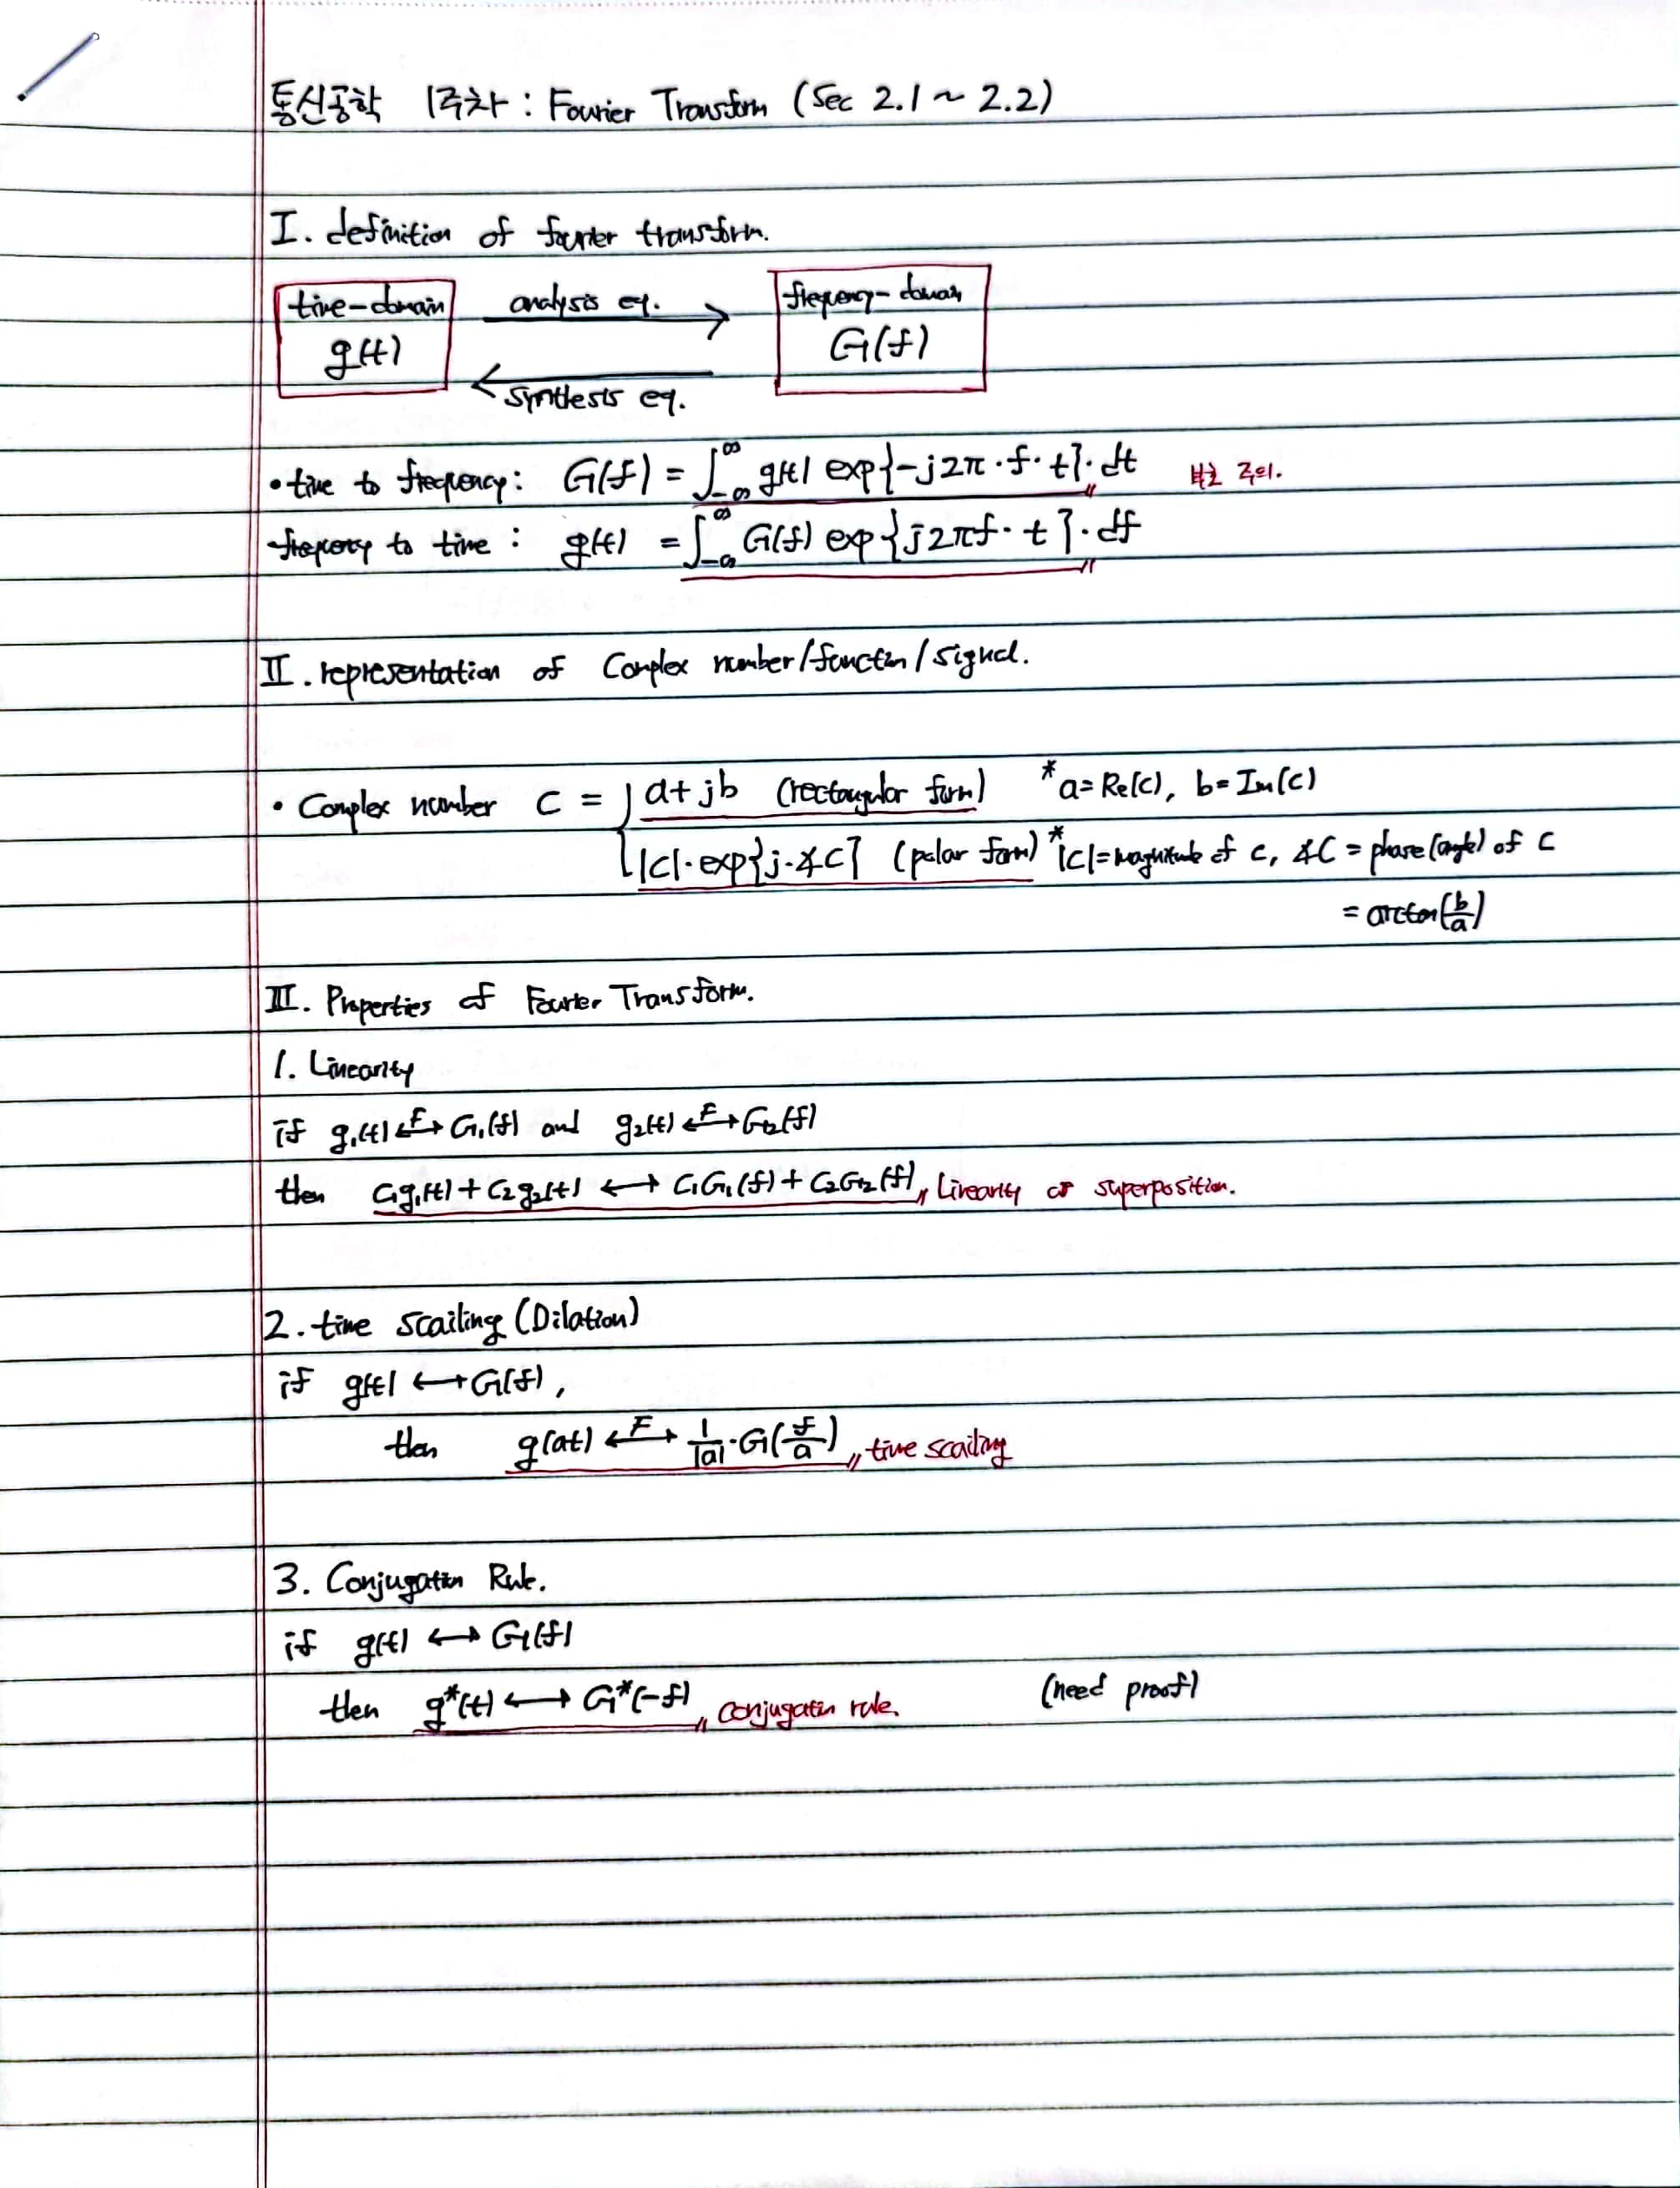 통신공학 1주차 : Fourier Transform (Sec 2.1 ~ 2.2)
I. definition of fourier transform.
time-domain analysis eq. frequency-domain
g(t) G(f)
synthesis eq.
• time to frequency : G(f) = ∫_{-∞}^{∞} g(t) exp{-j2π·f·t}·dt 부호 주의.
frequency to time : g(t) = ∫_{-∞}^{∞} G(f) exp{j2πf·t}·df
II. representation of Complex number/function/signal.
• Complex number C = { a+jb (rectangular form) *a=Re(C), b=Im(C)
|C|·exp{j·∡C} (polar form) *|C|=magnitude of c, ∡C = phase(angle) of C
= arctan(b/a)
III. Properties of Fourier Transform.
1. Linearity
if g₁(t) ←F→ G₁(f) and g₂(t) ←F→ G₂(f)
then C₁g₁(t) + C₂g₂(t) ↔ C₁G₁(f) + C₂G₂(f) 〃 Linearity or superposition.
2. time scailing (Dilation)
if g(t) ↔ G(f),
then g(at) ←F→ 1/|a|·G(f/a) 〃 time scailing
3. Conjugation Rule.
if g(t) ↔ G(f)
then g*(t) ↔ G*(-f) 〃 conjugation rule. (need proof)